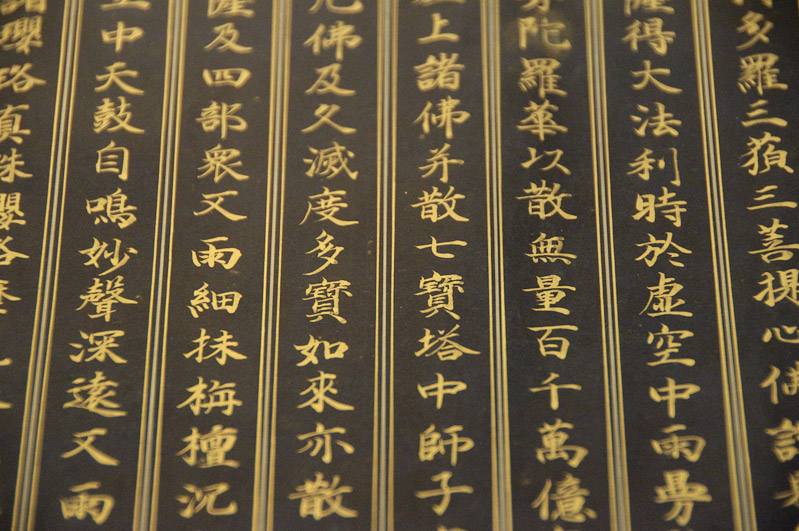 多羅三藐三菩提心佛說是
薩得大法利時於虛空中雨曼
陀羅華以散無量百千萬億
上諸佛并散七寶塔中師子
尼佛及久滅度多寶如來亦散
薩及四部眾又雨細抹栴檀沉
中天鼓自鳴妙聲深遠又雨
瓔珞真珠瓔珞